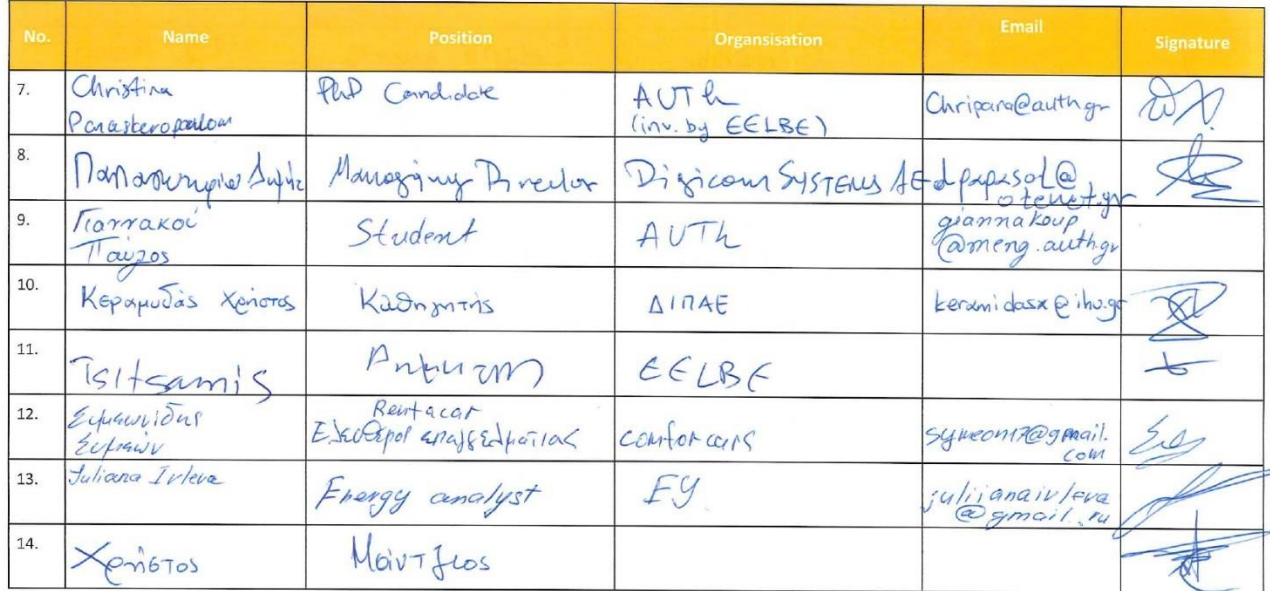 No. Name Position Organsisation Email Signature
7. Christina PhD Candidate AUTh Chripara@auth.gr
(inv. by EELBE)
8. Managing Director Digicom SYSTEMS AE dpapasol@
otenet.gr
9. Γιαννακού Student AUTh giannakoup
Παύλος @meng.auth.gr
10. Κεραμυδάς Χρήστος Καθηγητής ΔΙΠΑΕ keramidasx@ihu.gr
11. Tsitsamis EELBE
12. Συμεωνίδης Rentacar
Συμεών Ελεύθερος επαγγελματίας comforcars symeon17@gmail.
com
13. Juliana Ivleva Energy analyst EY juliianaivleva
@gmail.ru
14. Χρήστος